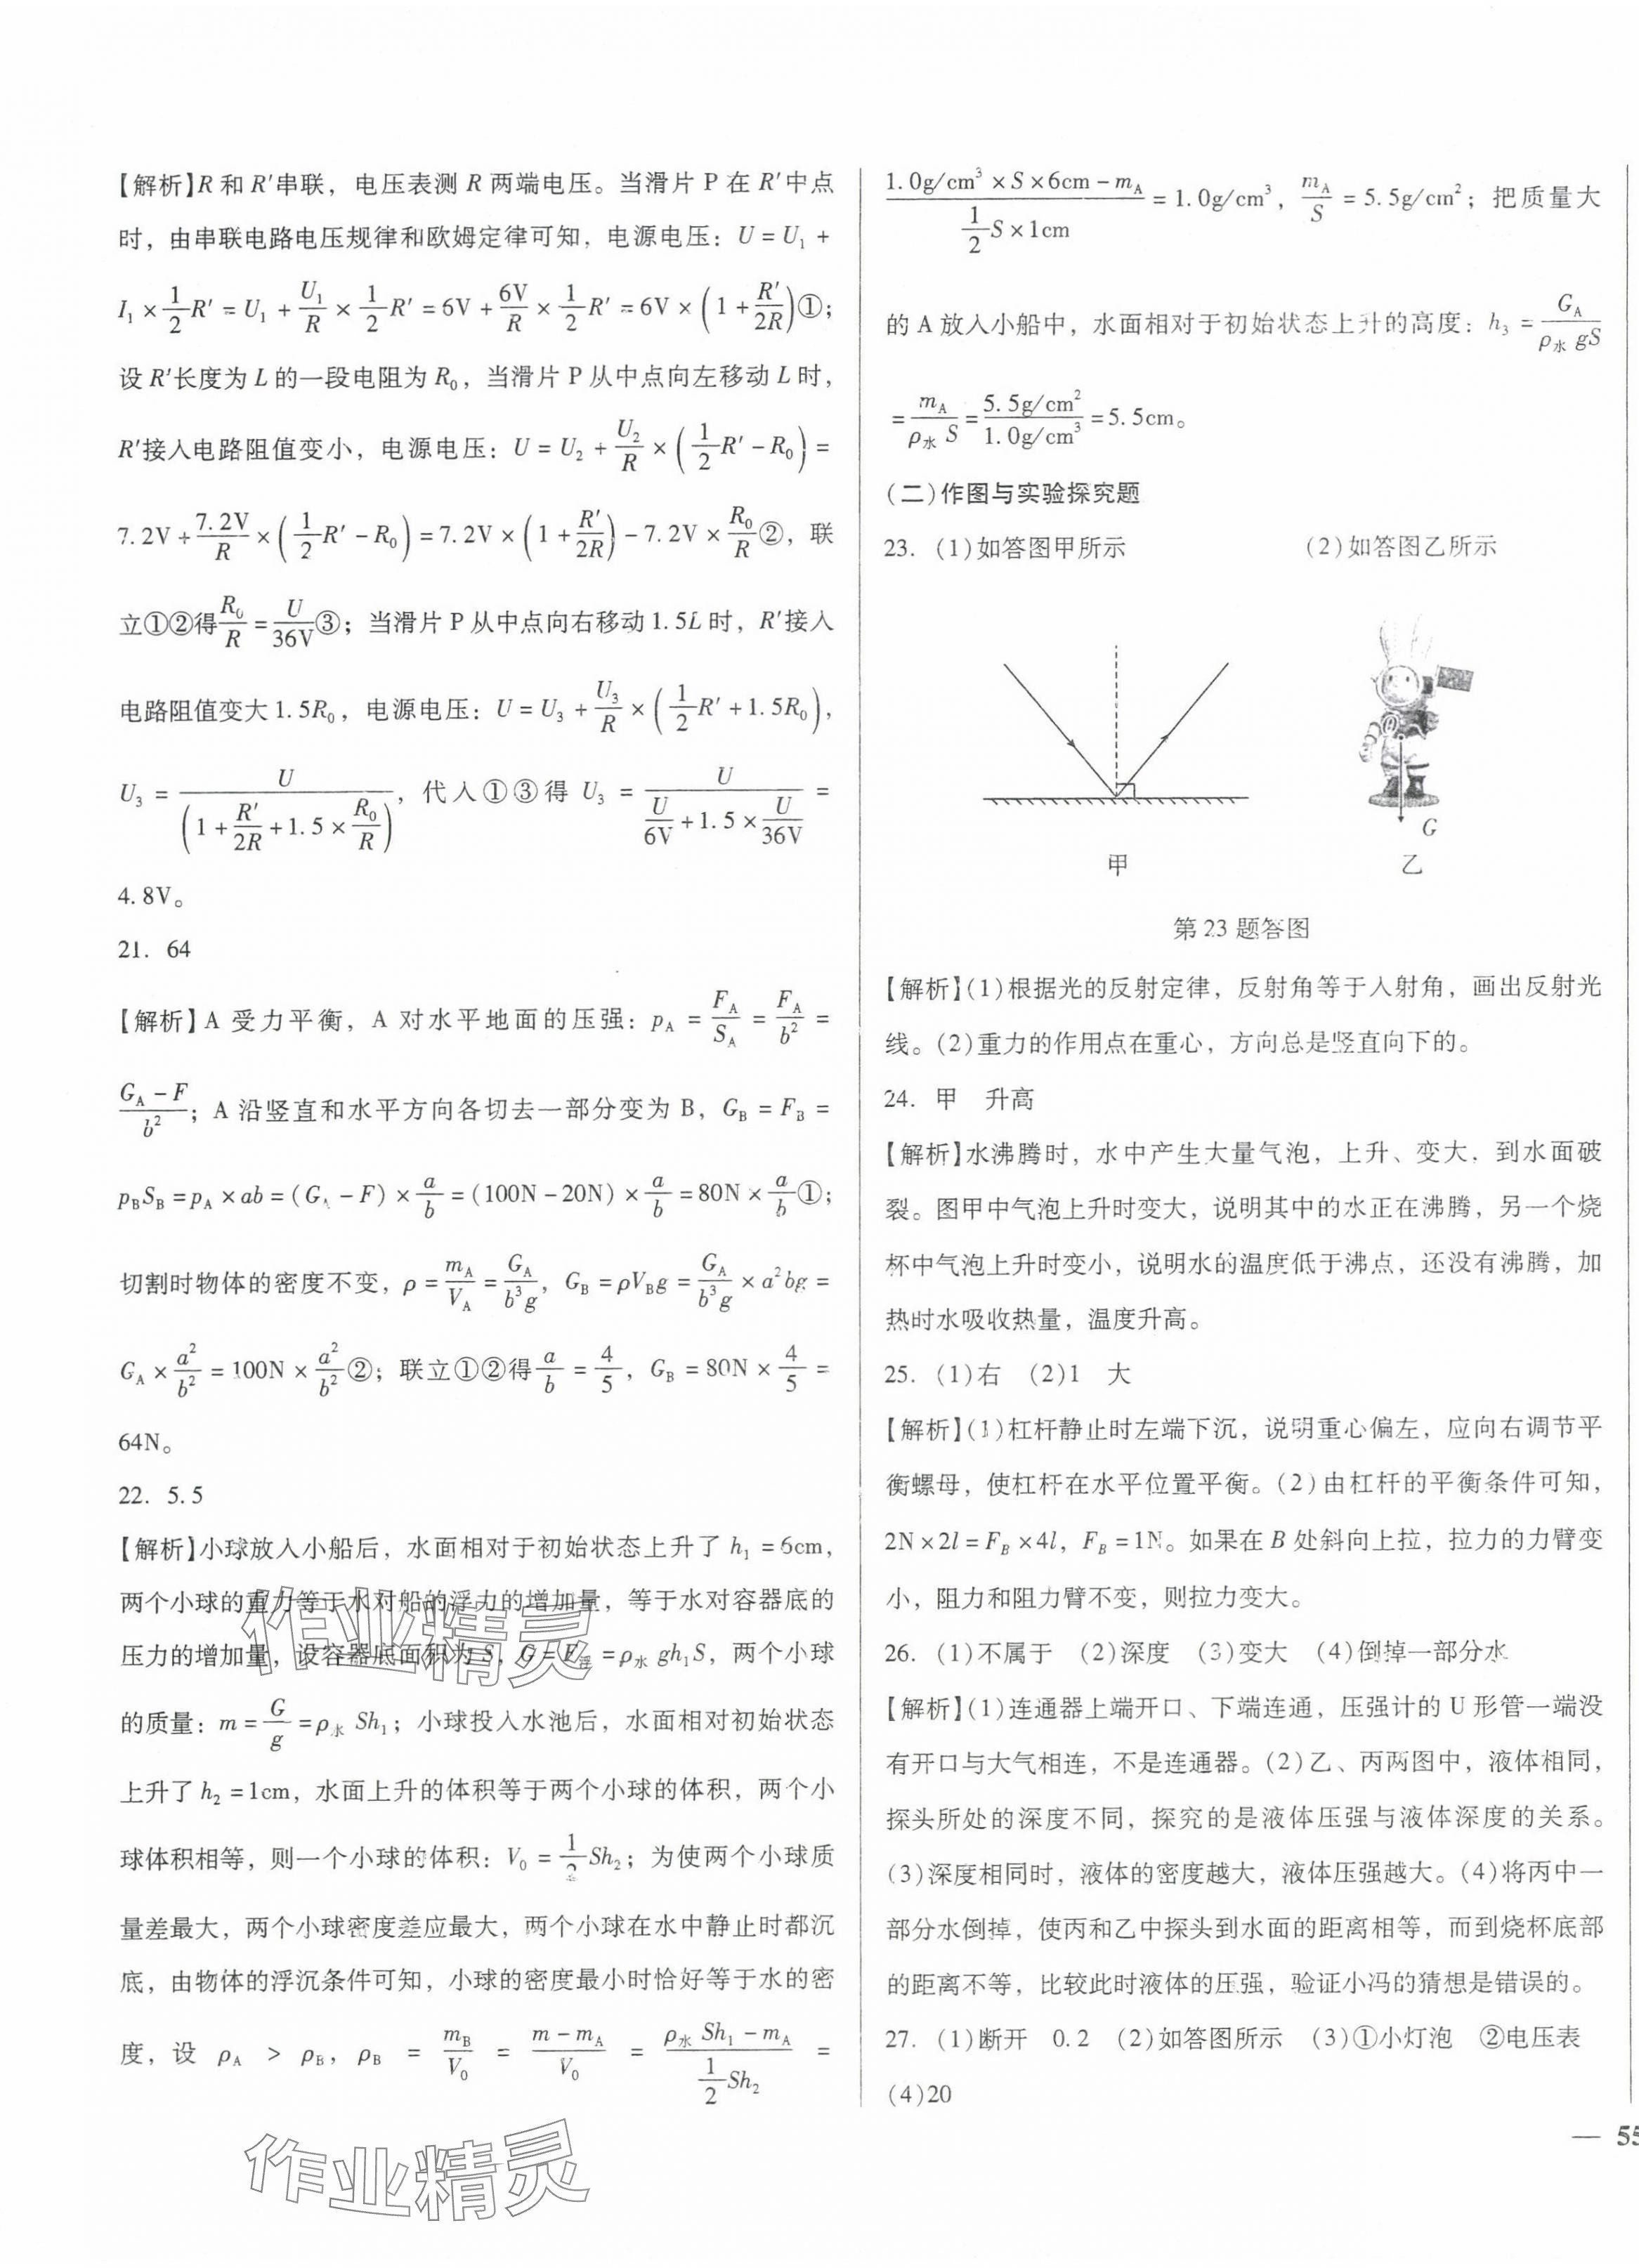 【解析】R 和 R′串联，电压表测 R 两端电压。当滑片 P 在 R′中点
时，由串联电路电压规律和欧姆定律可知，电源电压：U = U₁ +
I₁ × 1/2 R′ = U₁ + U₁/R × 1/2 R′ = 6V + 6V/R × 1/2 R′ = 6V × (1 + R′/2R)①；
设 R′长度为 L 的一段电阻为 R₀，当滑片 P 从中点向左移动 L 时，
R′接入电路阻值变小，电源电压：U = U₂ + U₂/R × (1/2 R′ − R₀) =
7.2V + 7.2V/R × (1/2 R′ − R₀) = 7.2V × (1 + R′/2R) − 7.2V × R₀/R②，联
立①②得 R₀/R = U/36V③；当滑片 P 从中点向右移动 1.5L 时，R′接入
电路阻值变大 1.5R₀，电源电压：U = U₃ + U₃/R × (1/2 R′ + 1.5R₀)，
U₃ = U/(1 + R′/2R + 1.5 × R₀/R)，代入①③得 U₃ = U/(U/6V + 1.5 × U/36V) =
4.8V。
21. 64
【解析】A 受力平衡，A 对水平地面的压强：p_A = F_A/S_A = F_A/b² =
(G_A − F)/b²；A 沿竖直和水平方向各切去一部分变为 B，G_B = F_B =
p_B S_B = p_A × ab = (G_A − F) × a/b = (100N − 20N) × a/b = 80N × a/b①；
切割时物体的密度不变，ρ = m_A/V_A = G_A/b³g，G_B = ρV_B g = G_A/b³g × a²bg =
G_A × a²/b² = 100N × a²/b²②；联立①②得 a/b = 4/5，G_B = 80N × 4/5 =
64N。
22. 5.5
【解析】小球放入小船后，水面相对于初始状态上升了 h₁ = 6cm，
两个小球的重力等于水对船的浮力的增加量，等于水对容器底的
压力的增加量，设容器底面积为 S，G = F浮 = ρ水 gh₁S，两个小球
的质量：m = G/g = ρ水 Sh₁；小球投入水池后，水面相对初始状态
上升了 h₂ = 1cm，水面上升的体积等于两个小球的体积，两个小
球体积相等，则一个小球的体积：V₀ = 1/2 Sh₂；为使两个小球质
量差最大，两个小球密度差应最大，两个小球在水中静止时都沉
底，由物体的浮沉条件可知，小球的密度最小时恰好等于水的密
度，设 ρ_A > ρ_B，ρ_B = m_B/V₀ = (m − m_A)/V₀ = (ρ水 Sh₁ − m_A)/(1/2 Sh₂) =
(1.0g/cm³ × S × 6cm − m_A)/(1/2 S × 1cm) = 1.0g/cm³，m_A/S = 5.5g/cm²；把质量大
的 A 放入小船中，水面相对于初始状态上升的高度：h₃ = G_A/(ρ水 gS)
= m_A/(ρ水 S) = 5.5g/cm²/1.0g/cm³ = 5.5cm。
(二)作图与实验探究题
23. (1)如答图甲所示 (2)如答图乙所示
G
甲 乙
第 23 题答图
【解析】(1)根据光的反射定律，反射角等于入射角，画出反射光
线。(2)重力的作用点在重心，方向总是竖直向下的。
24. 甲 升高
【解析】水沸腾时，水中产生大量气泡，上升、变大，到水面破
裂。图甲中气泡上升时变大，说明其中的水正在沸腾，另一个烧
杯中气泡上升时变小，说明水的温度低于沸点，还没有沸腾，加
热时水吸收热量，温度升高。
25. (1)右 (2)1 大
【解析】(1)杠杆静止时左端下沉，说明重心偏左，应向右调节平
衡螺母，使杠杆在水平位置平衡。(2)由杠杆的平衡条件可知，
2N × 2l = F_B × 4l，F_B = 1N。如果在 B 处斜向上拉，拉力的力臂变
小，阻力和阻力臂不变，则拉力变大。
26. (1)不属于 (2)深度 (3)变大 (4)倒掉一部分水
【解析】(1)连通器上端开口、下端连通，压强计的 U 形管一端没
有开口与大气相连，不是连通器。(2)乙、丙两图中，液体相同，
探头所处的深度不同，探究的是液体压强与液体深度的关系。
(3)深度相同时，液体的密度越大，液体压强越大。(4)将丙中一
部分水倒掉，使丙和乙中探头到水面的距离相等，而到烧杯底部
的距离不等，比较此时液体的压强，验证小冯的猜想是错误的。
27. (1)断开 0.2 (2)如答图所示 (3)①小灯泡 ②电压表
(4)20
— 55
作业精灵
作业精灵